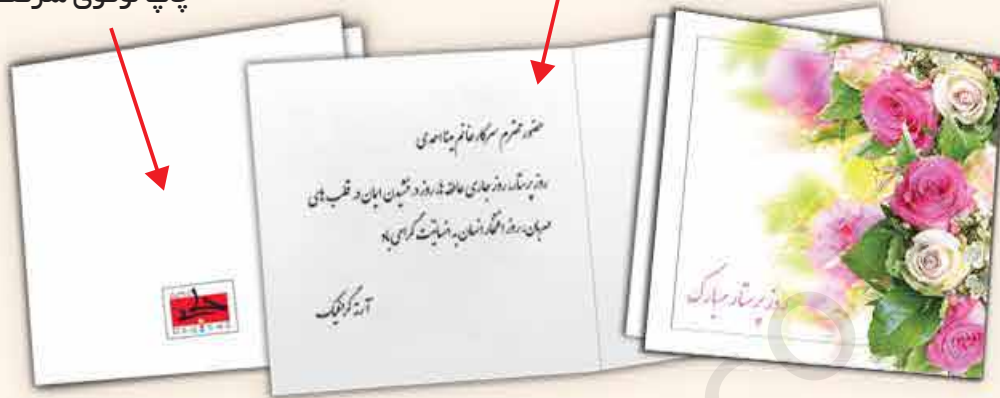 چاپ لوگوی
حضور محترم سرکار خانم مینا احمدی
روز پرستار، روز جاری عاطفه ها، روز درخشیدن ایمان در قلب های
مهربان، روز افتخار انسان به انسانیت گرامی باد
آرنه گرافیک
روز پرستار مبارک